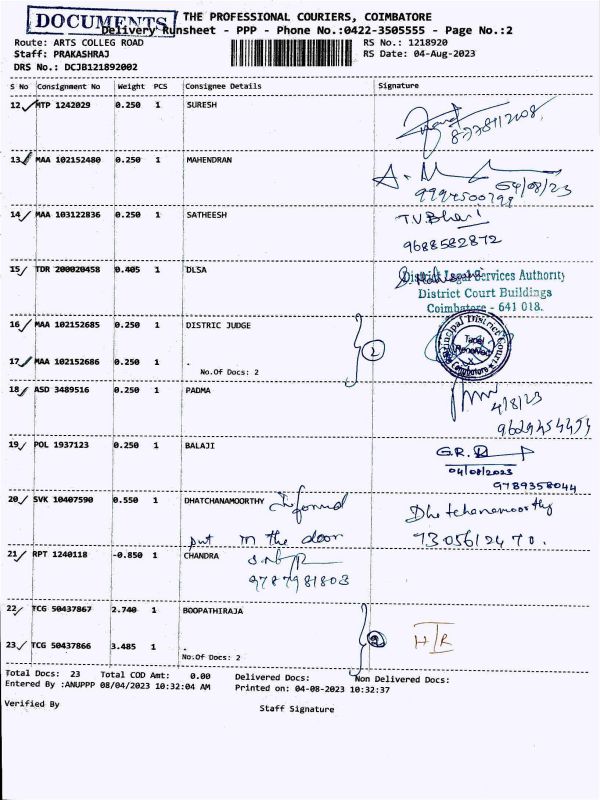 DOCUMENTS
THE PROFESSIONAL COURIERS, COIMBATORE
Delivery Runsheet - PPP - Phone No.:0422-3505555 - Page No.:2
Route: ARTS COLLEG ROAD
RS No.: 1218920
Staff: PRAKASHRAJ
RS Date: 04-Aug-2023
DRS No.: DCJB121892002
S No Consignment No Weight PCS Consignee Details Signature
12 MTP 1242029 0.250 1 SURESH
13 MAA 102152480 0.250 1 MAHENDRAN
04/08/23
14 MAA 103122836 0.250 1 SATHEESH
9688582872
15 TDR 200020458 0.405 1 DLSA
District Legal Services Authority
District Court Buildings
Coimbatore - 641 018.
16 MAA 102152685 0.250 1 DISTRIC JUDGE
2
17 MAA 102152686 0.250 1 .
No.Of Docs: 2
18 ASD 3489516 0.250 1 PADMA
4/8/23
19 POL 1937123 0.250 1 BALAJI
G.R.
04/08/2023
9789358044
20 SVK 10407590 0.550 1 DHATCHANAMOORTHY Informed
put in the door
Dhatchanamoorthy
7305612470.
21 RPT 1240118 -0.850 1 CHANDRA
9787981803
22 TCG 50437867 2.740 1 BOOPATHIRAJA
23 TCG 50437866 3.485 1 .
No.Of Docs: 2
Total Docs: 23 Total COD Amt: 0.00 Delivered Docs: Non Delivered Docs:
Entered By :ANUPPP 08/04/2023 10:32:04 AM Printed on: 04-08-2023 10:32:37
Verified By
Staff Signature